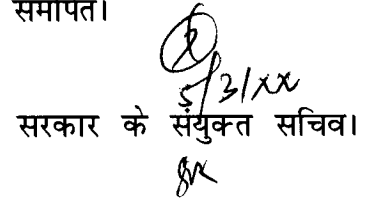 समापित।
5/3/XX
सरकार के संयुक्त सचिव।